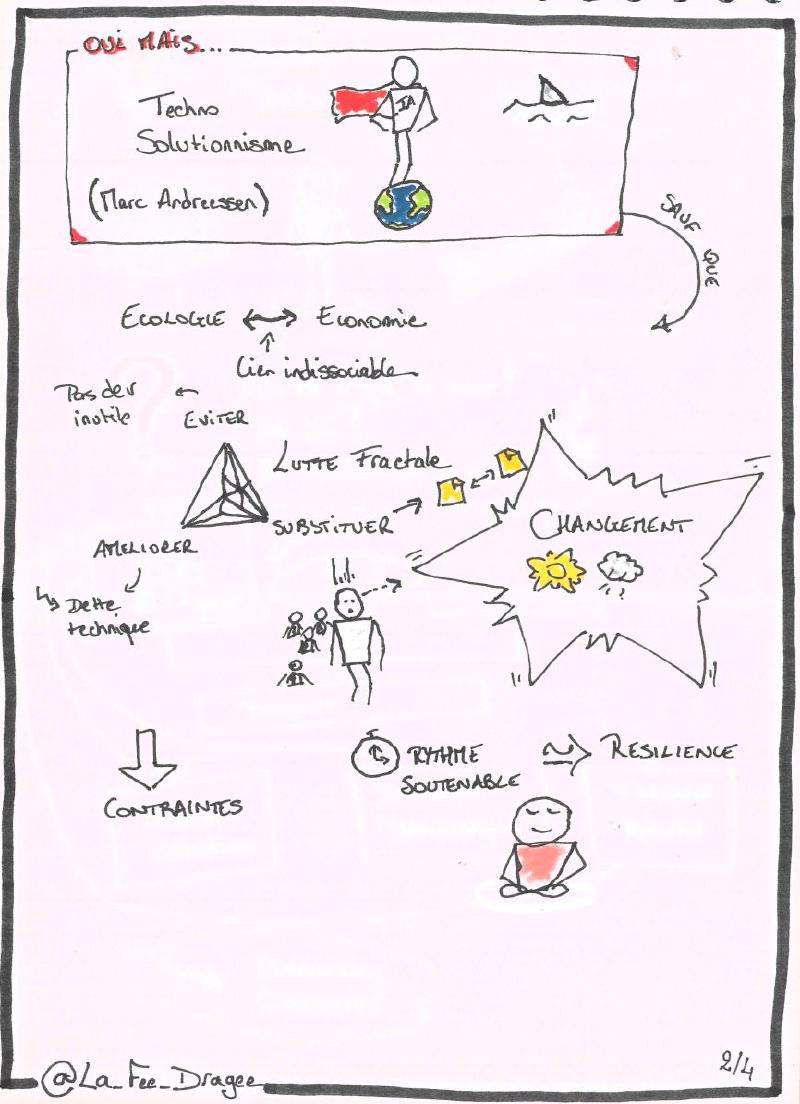 OUI MAIS...
Techno
Solutionnisme
(Marc Andreessen)
IA
SAUF QUE
ECOLOGIE ↔ ECONOMIE
Lien indissociable
Pas dev
inutile
EVITER
LUTTE Fractale
SUBSTITUER
AMELIORER
Dette
technique
CHANGEMENT
CONTRAINTES
RYTHME
SOUTENABLE
RESILIENCE
@La_Fee_Dragee
2/4